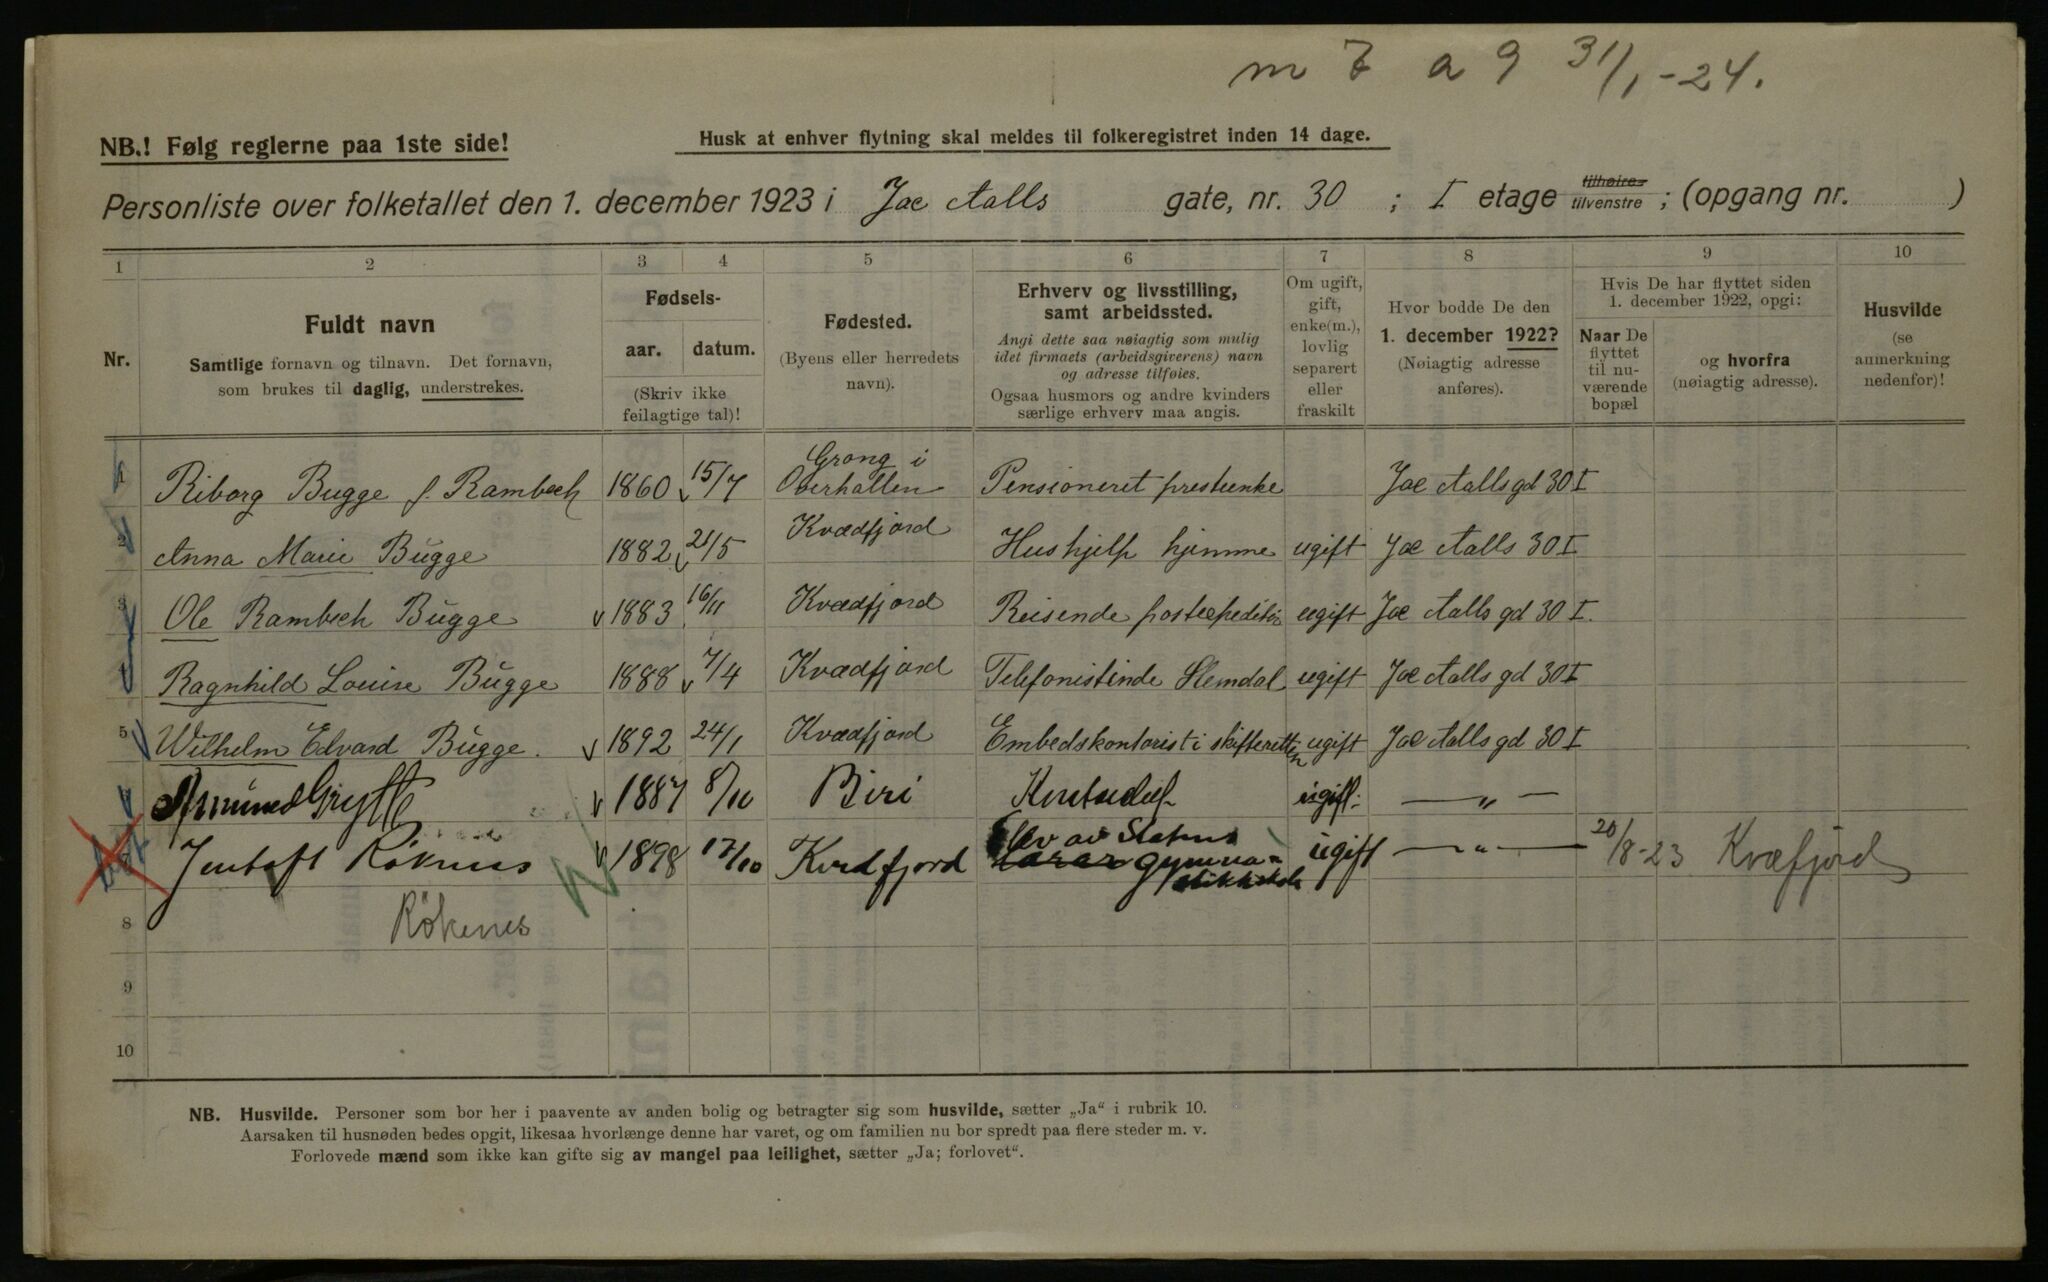 m 7 a 9 31/1-24.
NB.! Følg reglerne paa 1ste side!
Husk at enhver flytning skal meldes til folkeregistret inden 14 dage.
Personliste over folketallet den 1. december 1923 i Jac Aalls gate, nr. 30 ; I etage tilhøires tilvenstre ; (opgang nr. )
1 2 3 4 5 6 7 8 9 10
Nr.
Fuldt navn
Samtlige fornavn og tilnavn. Det fornavn,
som brukes til daglig, understrekes.
Fødsels-
aar. datum.
(Skriv ikke
feilagtige tal)!
Fødested.
(Byens eller herredets
navn).
Erhverv og livsstilling,
samt arbeidssted.
Angi dette saa nøiagtig som mulig
idet firmaets (arbeidsgiverens) navn
og adresse tilføies.
Ogsaa husmors og andre kvinders
særlige erhverv maa angis.
Om ugift,
gift,
enke(m.),
lovlig
separert
eller
fraskilt
Hvor bodde De den
1. december 1922?
(Nøiagtig adresse
anføres).
Hvis De har flyttet siden
1. december 1922, opgi:
Naar De
flyttet
til nu-
værende
bopæl
og hvorfra
(nøiagtig adresse).
Husvilde
(se
anmerkning
nedenfor)!
1 Riborg Bugge f. Rambech 1860 15/7 Grong i Overhallen Pensioneret presteenke Jac Aalls gd 30 I
2 Anna Marie Bugge 1882 21/5 Kvædfjord Hushjelp hjemme ugift Jac Aalls 30 I
3 Ole Rambech Bugge 1883 16/11 Kvædfjord Reisende postexpeditør ugift Jac Aalls gd 30 I.
Ragnhild Louise Bugge 1888 7/4 Kvædfjord Telefonistinde Slemdal ugift Jac Aalls gd 30 I
5 Wilhelm Edvard Bugge. 1892 24/1 Kvædfjord Embedskontorist i skifteretten ugift Jac Aalls gd 30 I
Amund Grytte 1887 8/10 Biri ugift. — „ —
Jentoft Rökenes 1898 17/10 Kvedfjord Elev av Statens gymna-
stikkskole ugift — „ — 20/8-23 Kvæfjord
8 Rökenes
9
10
NB. Husvilde. Personer som bor her i paavente av anden bolig og betragter sig som husvilde, sætter „Ja“ i rubrik 10.
Aarsaken til husnøden bedes opgit, likesaa hvorlænge denne har varet, og om familien nu bor spredt paa flere steder m. v.
Forlovede mænd som ikke kan gifte sig av mangel paa leilighet, sætter „Ja; forlovet“.